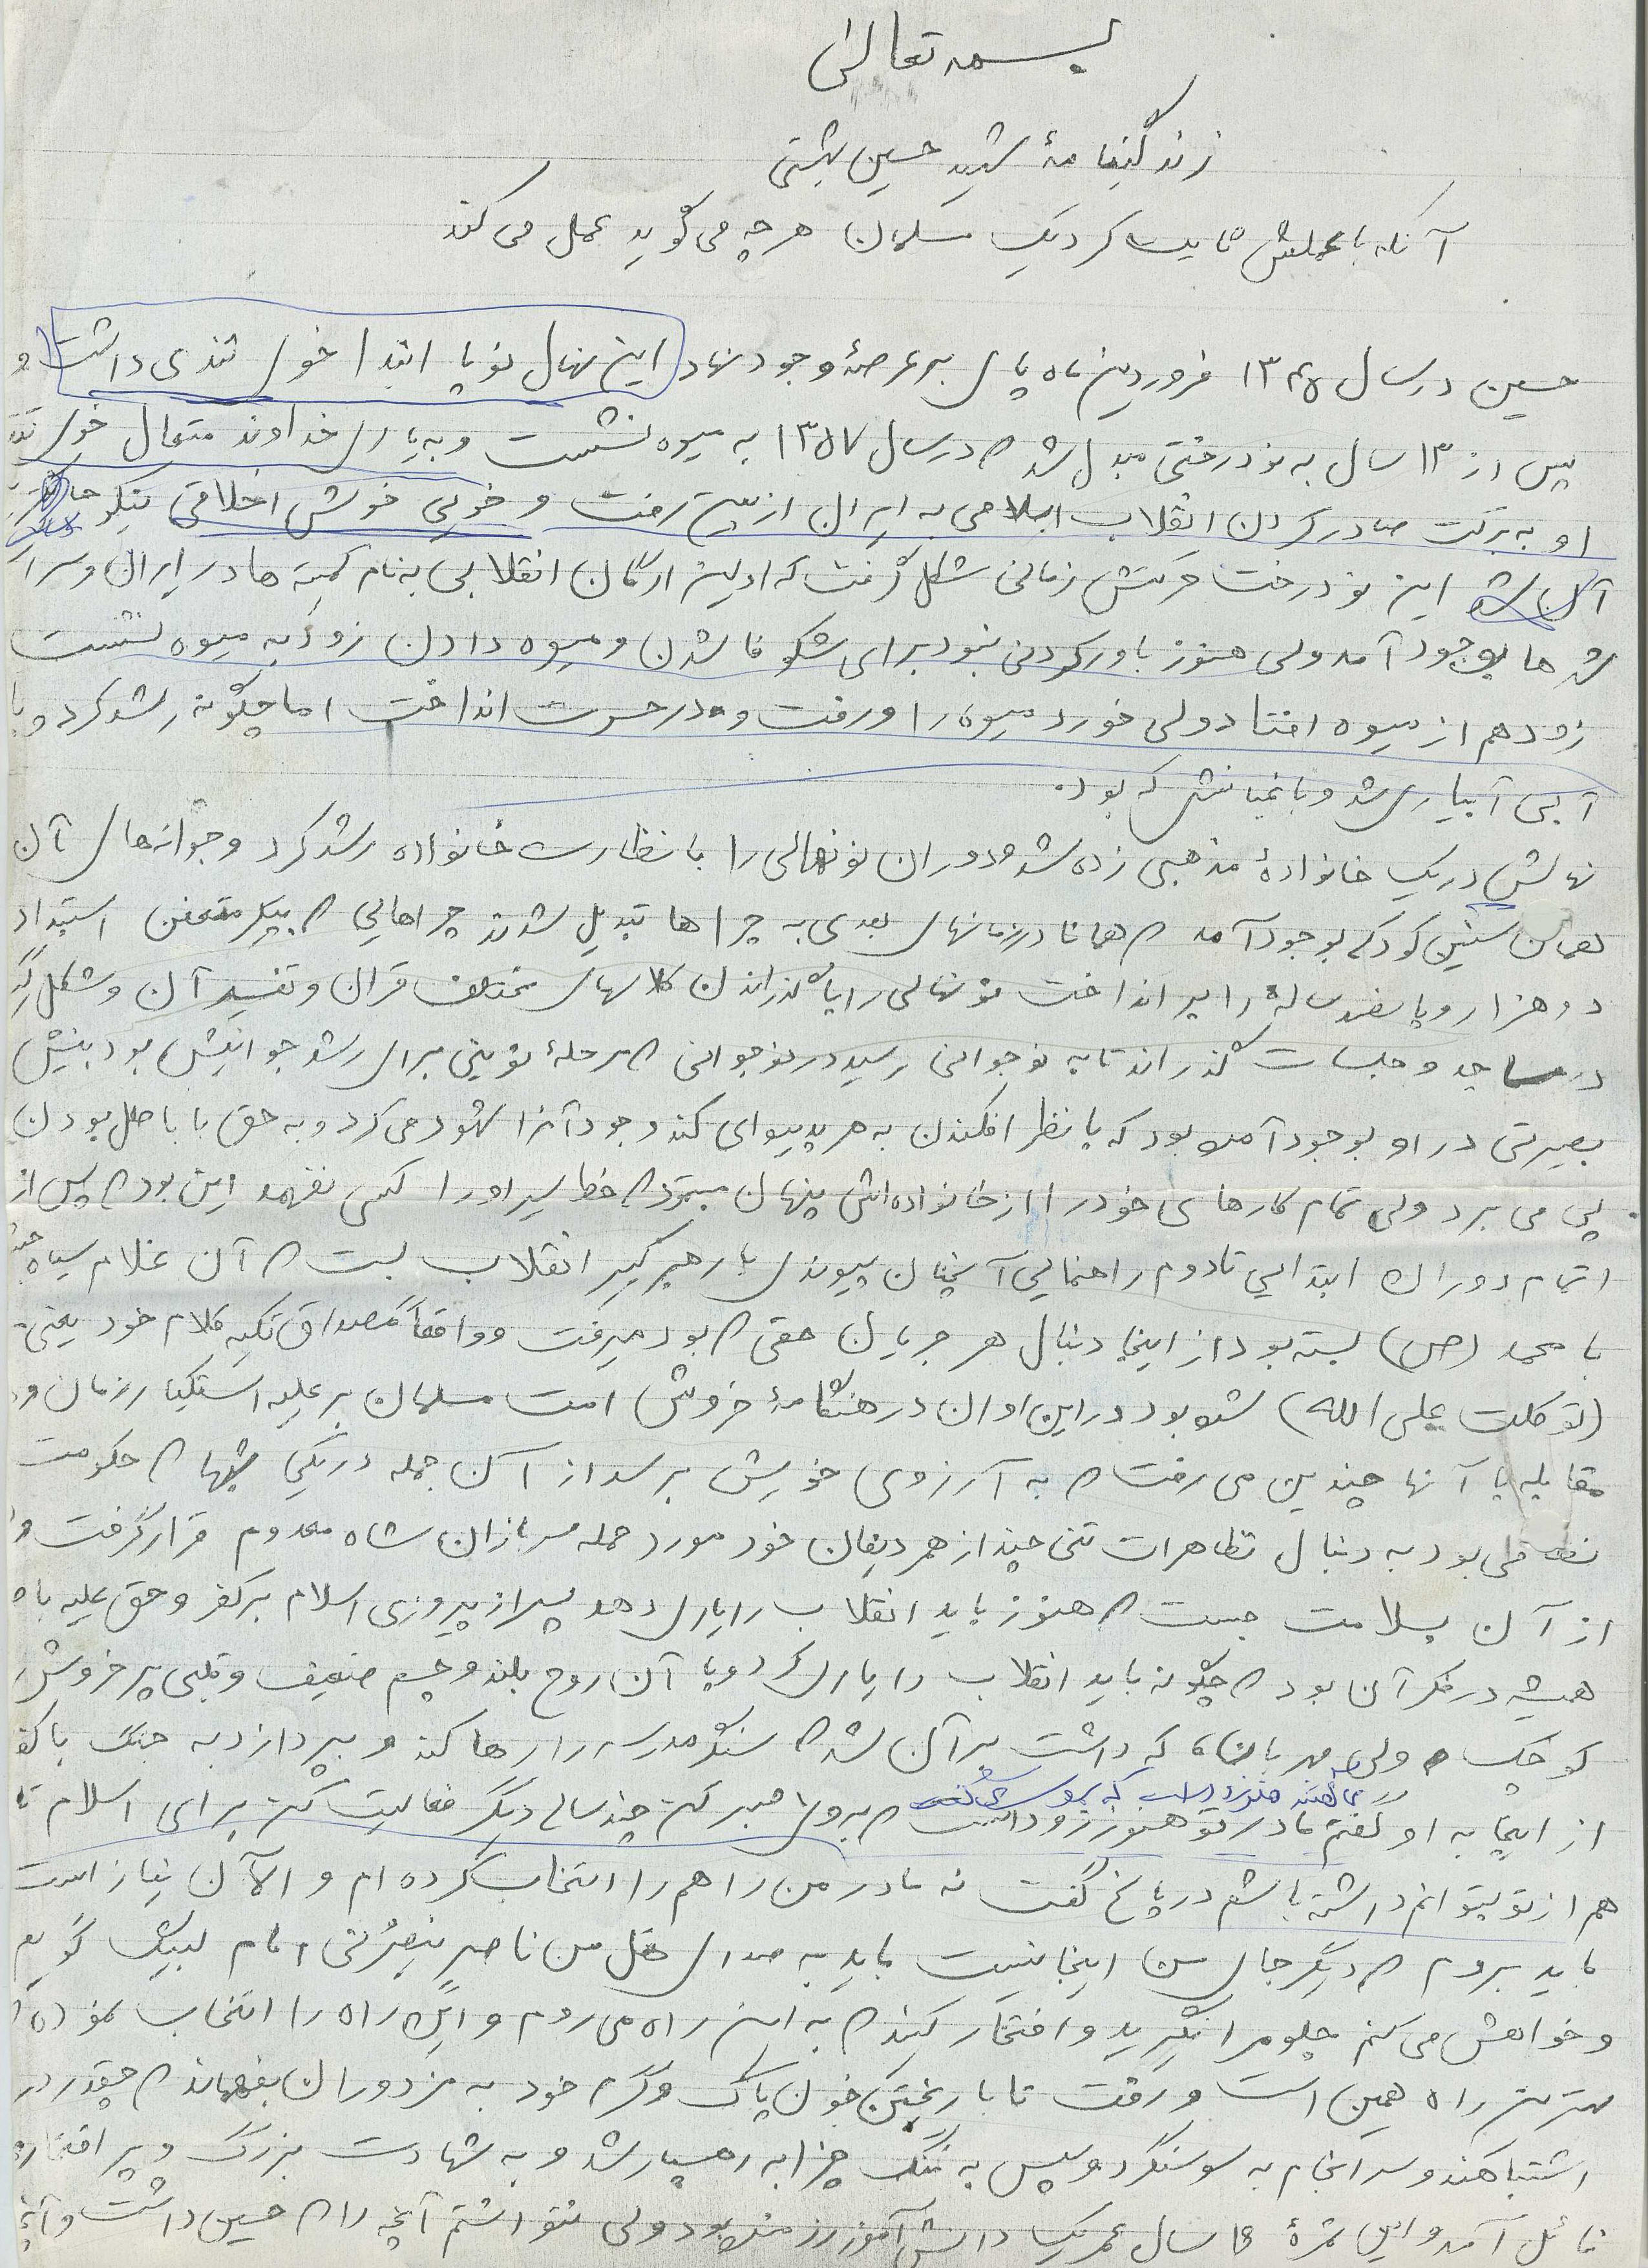 بسمه تعالی
زندگینامهٔ شهید حسین بهشتی
آنکه با عملش ثابت کرد یک مسلمان هر چه می گوید عمل می کند
حسین در سال ۱۳۴۵ فروردین ماه پای به عرصهٔ وجود نهاد این نهال نوپا ابتدا خوی تندی داشت و
پس از ۱۳ سال به نو درختی مبدل شد که در سال ۱۳۵۷ به میوه نشست و به یاری خداوند متعال خوی تند
او به برکت صادر کردن انقلاب اسلامی به ایران از بین رفت و خویی خوش اخلاقی نیکو
آن شد این نو درخت حرکتش زمانی شکل گرفت که اولین ارگان انقلابی به نام کمیته ها در ایران و سرا
شهر ها بوجود آمد ولی هنوز باورکردنی نبود برای شکوفا شدن و میوه دادن زود به میوه نشست
زود هم از میوه افتاد ولی خورد میوه را و رفت و در حسرت انداخت اما چگونه رشد کرد و با
آبی آبیاری شد و باغبانش که بود.
نهالش در یک خانوادهٔ مذهبی زده شد دوران نونهالی را با نظارت خانواده رشد کرد و جوانه های آن
همان سنین کودکی بوجود آمد که همانا در زمانهای بعدی به چرا ها تبدیل شدند چراهایی که پیکر متعفن استبداد
دو هزار و پانصد ساله را بر انداخت نونهالی را با گذراندن کلاسهای مختلف قرآن و تفسیر آن و شکل گیر
در مساجد و جلسات گذراند تا به نوجوانی رسید در نوجوانی که مرحلهٔ نوینی برای رشد جوانیش بود بینش
بصیرتی در او بوجود آمده بود که با نظر افکندن به هر پدیده ای کند وجود آنرا شهود می کرد و به حق یا باطل بودن
پی می برد ولی تمام کارهای خود را از خانواده اش پنهان مینمود که خط سیر او را کسی نفهمد این بود که پس از
اتمام دوران ابتدایی تا دوم راهنمایی آنچنان پیوندی با رهبر کبیر انقلاب بست که آن غلام سیاه
با محمد (ص) بسته بود از اینجا دنبال هر جریان حقی که بود میرفت و واقعاً مصداق تکیه کلام خود یعنی
(توکلت علی الله) شده بود در این اوان در هنگامهٔ خروش امت مسلمان بر علیه استکبار زمان و
مقابله با آنها چندین می رفت که به آرزوی خویش برسد از آن جمله در یکی شبها که حکومت
نظامی بود به دنبال تظاهرات تنی چند از همردیفان خود مورد حمله سربازان شاه معدوم قرار گرفت و
از آن بسلامت جست که هنوز باید انقلاب را یاری دهد پس از پیروزی اسلام بر کفر و حق علیه با
همیشه در فکر آن بود که چگونه باید انقلاب را یاری کرد و با آن روح بلند و جسم ضعیف و قلبی پر خروش
کوچک ولی مهربان که داشت بر آن شد که سنگر مدرسه را رها کند و بپردازد به جنگ با کفر
از اینجا به او گفتم مادر تو هنوز زود است که بروی صبر کن چند سالی دیگر فعالیت کن برای اسلام تا
هم از تو بتوانم داشته باشم در پاسخ گفت نه مادر من راهم را انتخاب کرده ام و الآن نیاز است
باید بروم که دیگر جای من اینجا نیست باید به صدای هل من ناصر ینصرنی امام لبیک گویم
و خواهش می کنم جلو مرا نگیرید و افتخار کنید که به این راه می روم و این راه را انتخاب نموده ام
بهترین راه همین است و رفت تا با ریختن خون پاک و گرم خود به مزدوران بفهماند که چقدر در
اشتباهند و سرانجام به سوسنگرد و سپس به تنگ چزابه رهسپار شد و به شهادت بزرگ و پر افتخار
نائل آمد و این ثمرهٔ ۱۵ سال عمر یک دانش آموز رزمنده بود ولی نتوانستم آنچه را که حسین داشت و آنچه